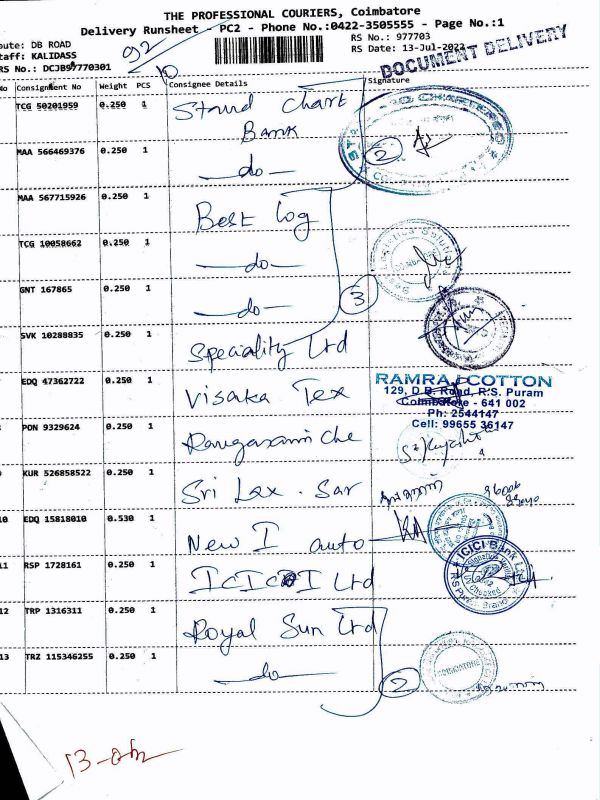 THE PROFESSIONAL COURIERS, Coimbatore
Delivery Runsheet - PC2 - Phone No.:0422-3505555 - Page No.:1
oute: DB ROAD
RS No.: 977703
taff: KALIDASS
RS Date: 13-Jul-2022
RS No.: DCJBS9770301
DOCUMENT DELIVERY
No Consignment No Weight PCS Consignee Details Signature
TCG 50201959 0.250 1 Stand Chart
Bank
2
MAA 566469376 0.250 1 —do—
MAA 567715926 0.250 1 Best Log
TCG 10058662 0.250 1 —do—
GNT 167865 0.250 1 —do—
3
SVK 10288835 0.250 1 Speciality Ltd
EDQ 47362722 0.250 1 Visaka Tex
RAMRAJ COTTON
129, D.B. Road, R.S. Puram
Coimbatore - 641 002
Ph: 2544147
Cell: 99655 36147
PON 9329624 0.250 1 Rangasami Che
KUR 526858522 0.250 1 Sri Lax. Sar
10 EDQ 15818010 0.530 1 New I auto
11 RSP 1728161 0.250 1 ICICI Ltd
ICICI Bank
12 TRP 1316311 0.250 1 Royal Sun Ltd
13 TRZ 115346255 0.250 1 —do—
2